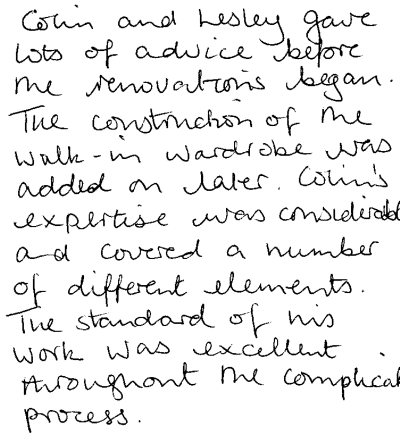 Colin and Lesley gave
lots of advice before
the renovations began.
The construction of the
walk-in wardrobe was
added on later. Colin's
expertise was considerabl
and covered a number
of different elements.
The standard of his
work was excellent
throughout the complicat
process.